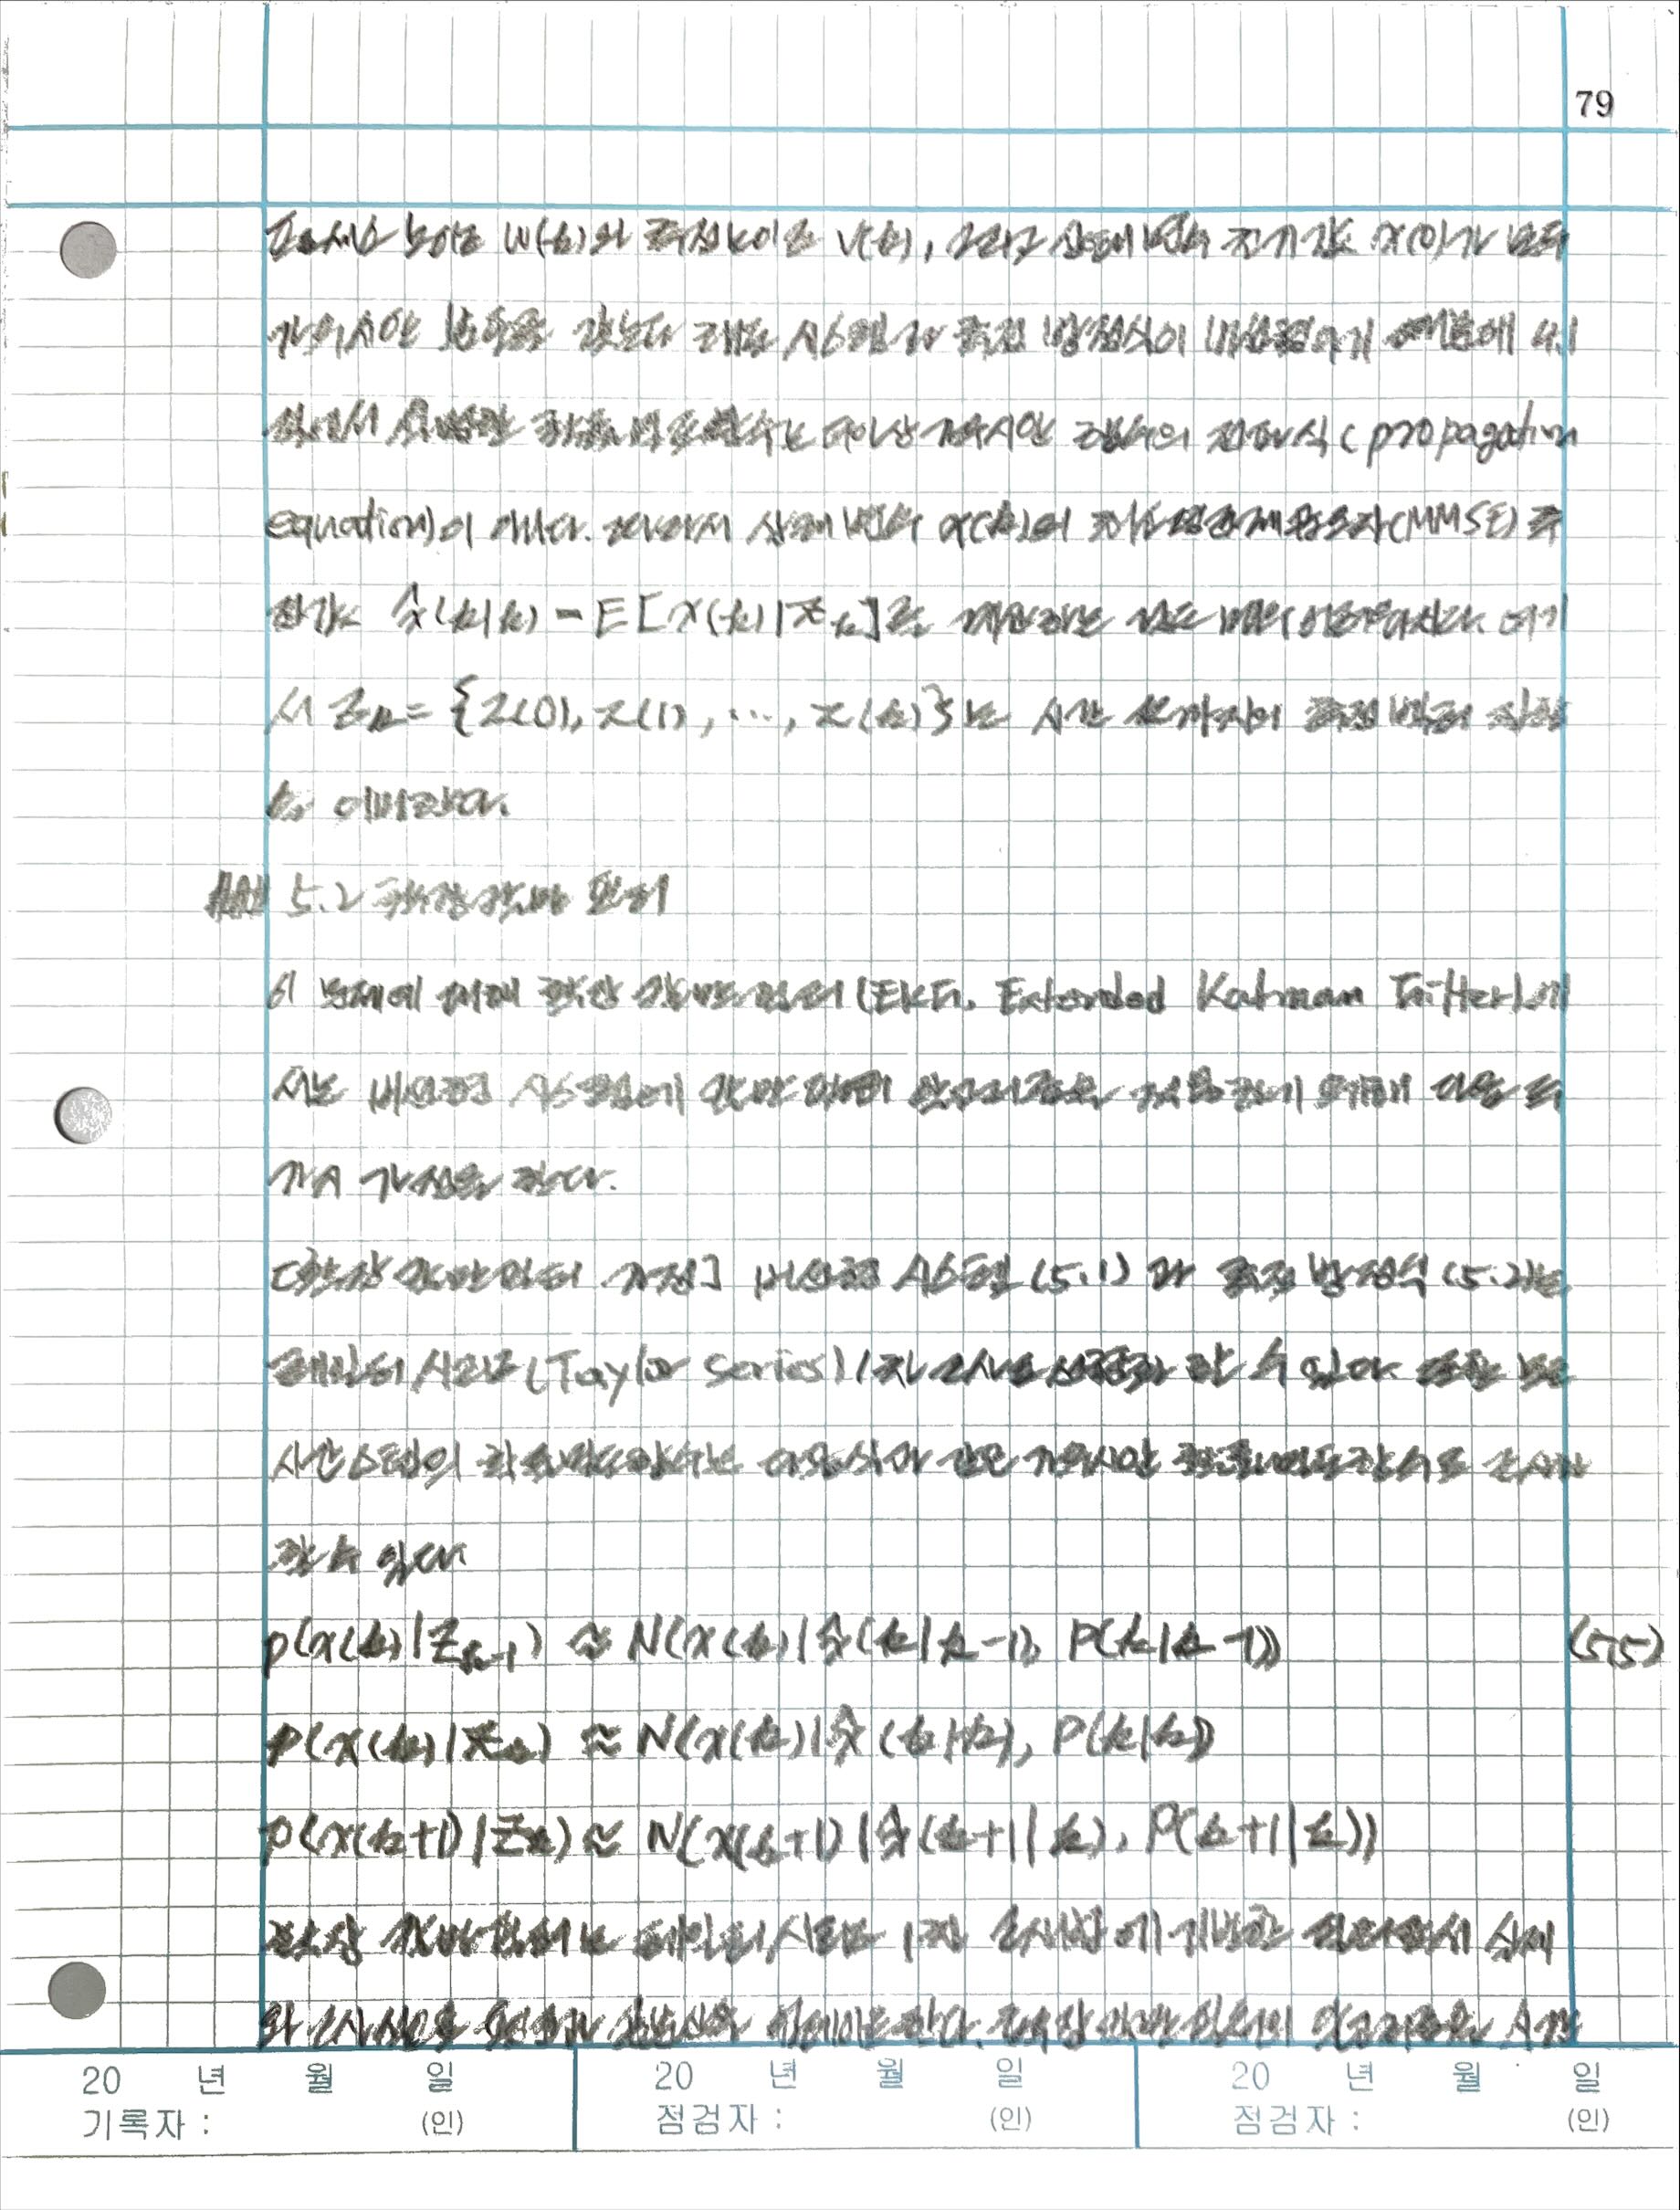 79
프로세스 노이즈 w(k)와 측정노이즈 v(k), 그리고 상태변수 초기값 x(0)가 모두
가우시안 분포를 갖는다 해도 시스템과 측정 방정식이 비선형이기 때문에 4.1
확률밀도함수는 더이상 가우시안 함수의 전파식(propagation
equation)이 아니다. 따라서 상태변수 x(k)의 최소평균제곱오차(MMSE) 추
정값 x̂(k|k) = E[x(k)|Z_k]를 계산하는 것도 매우 어려워진다. 여기
서 Z_k = {z(0), z(1), ..., z(k)}는 시간 k까지의 측정 벡터 집합
을 의미한다.
5.2 확장칼만 필터
이 문제에 대해 확장 칼만 필터(EKF, Extended Kalman Filter)에
서는 비선형 시스템에 칼만 필터 알고리즘을 적용하기 위해 다음 두
가지 가정을 한다.
[확장 칼만 필터 가정] 비선형 시스템 (5.1)과 측정 방정식 (5.2)는
테일러 시리즈(Taylor series) 1차 근사로 선형화 할 수 있다. 또한 모든
시간스텝의 확률밀도함수는 다음 식과 같은 가우시안 확률밀도함수로 근사화
할 수 있다
p(x(k)|Z_{k-1}) ≈ N(x(k)|x̂(k|k-1), P(k|k-1)) (5.5)
p(x(k)|Z_k) ≈ N(x(k)|x̂(k|k), P(k|k))
p(x(k+1)|Z_k) ≈ N(x(k+1)|x̂(k+1|k), P(k+1|k))
확장 칼만필터는 테일러 시리즈 1차 근사화에 기반한 실제
확장 칼만 필터의 알고리즘은 시간
20 년 월 일 20 년 월 일 20 년 월 일
기록자 : (인) 점검자 : (인) 점검자 : (인)